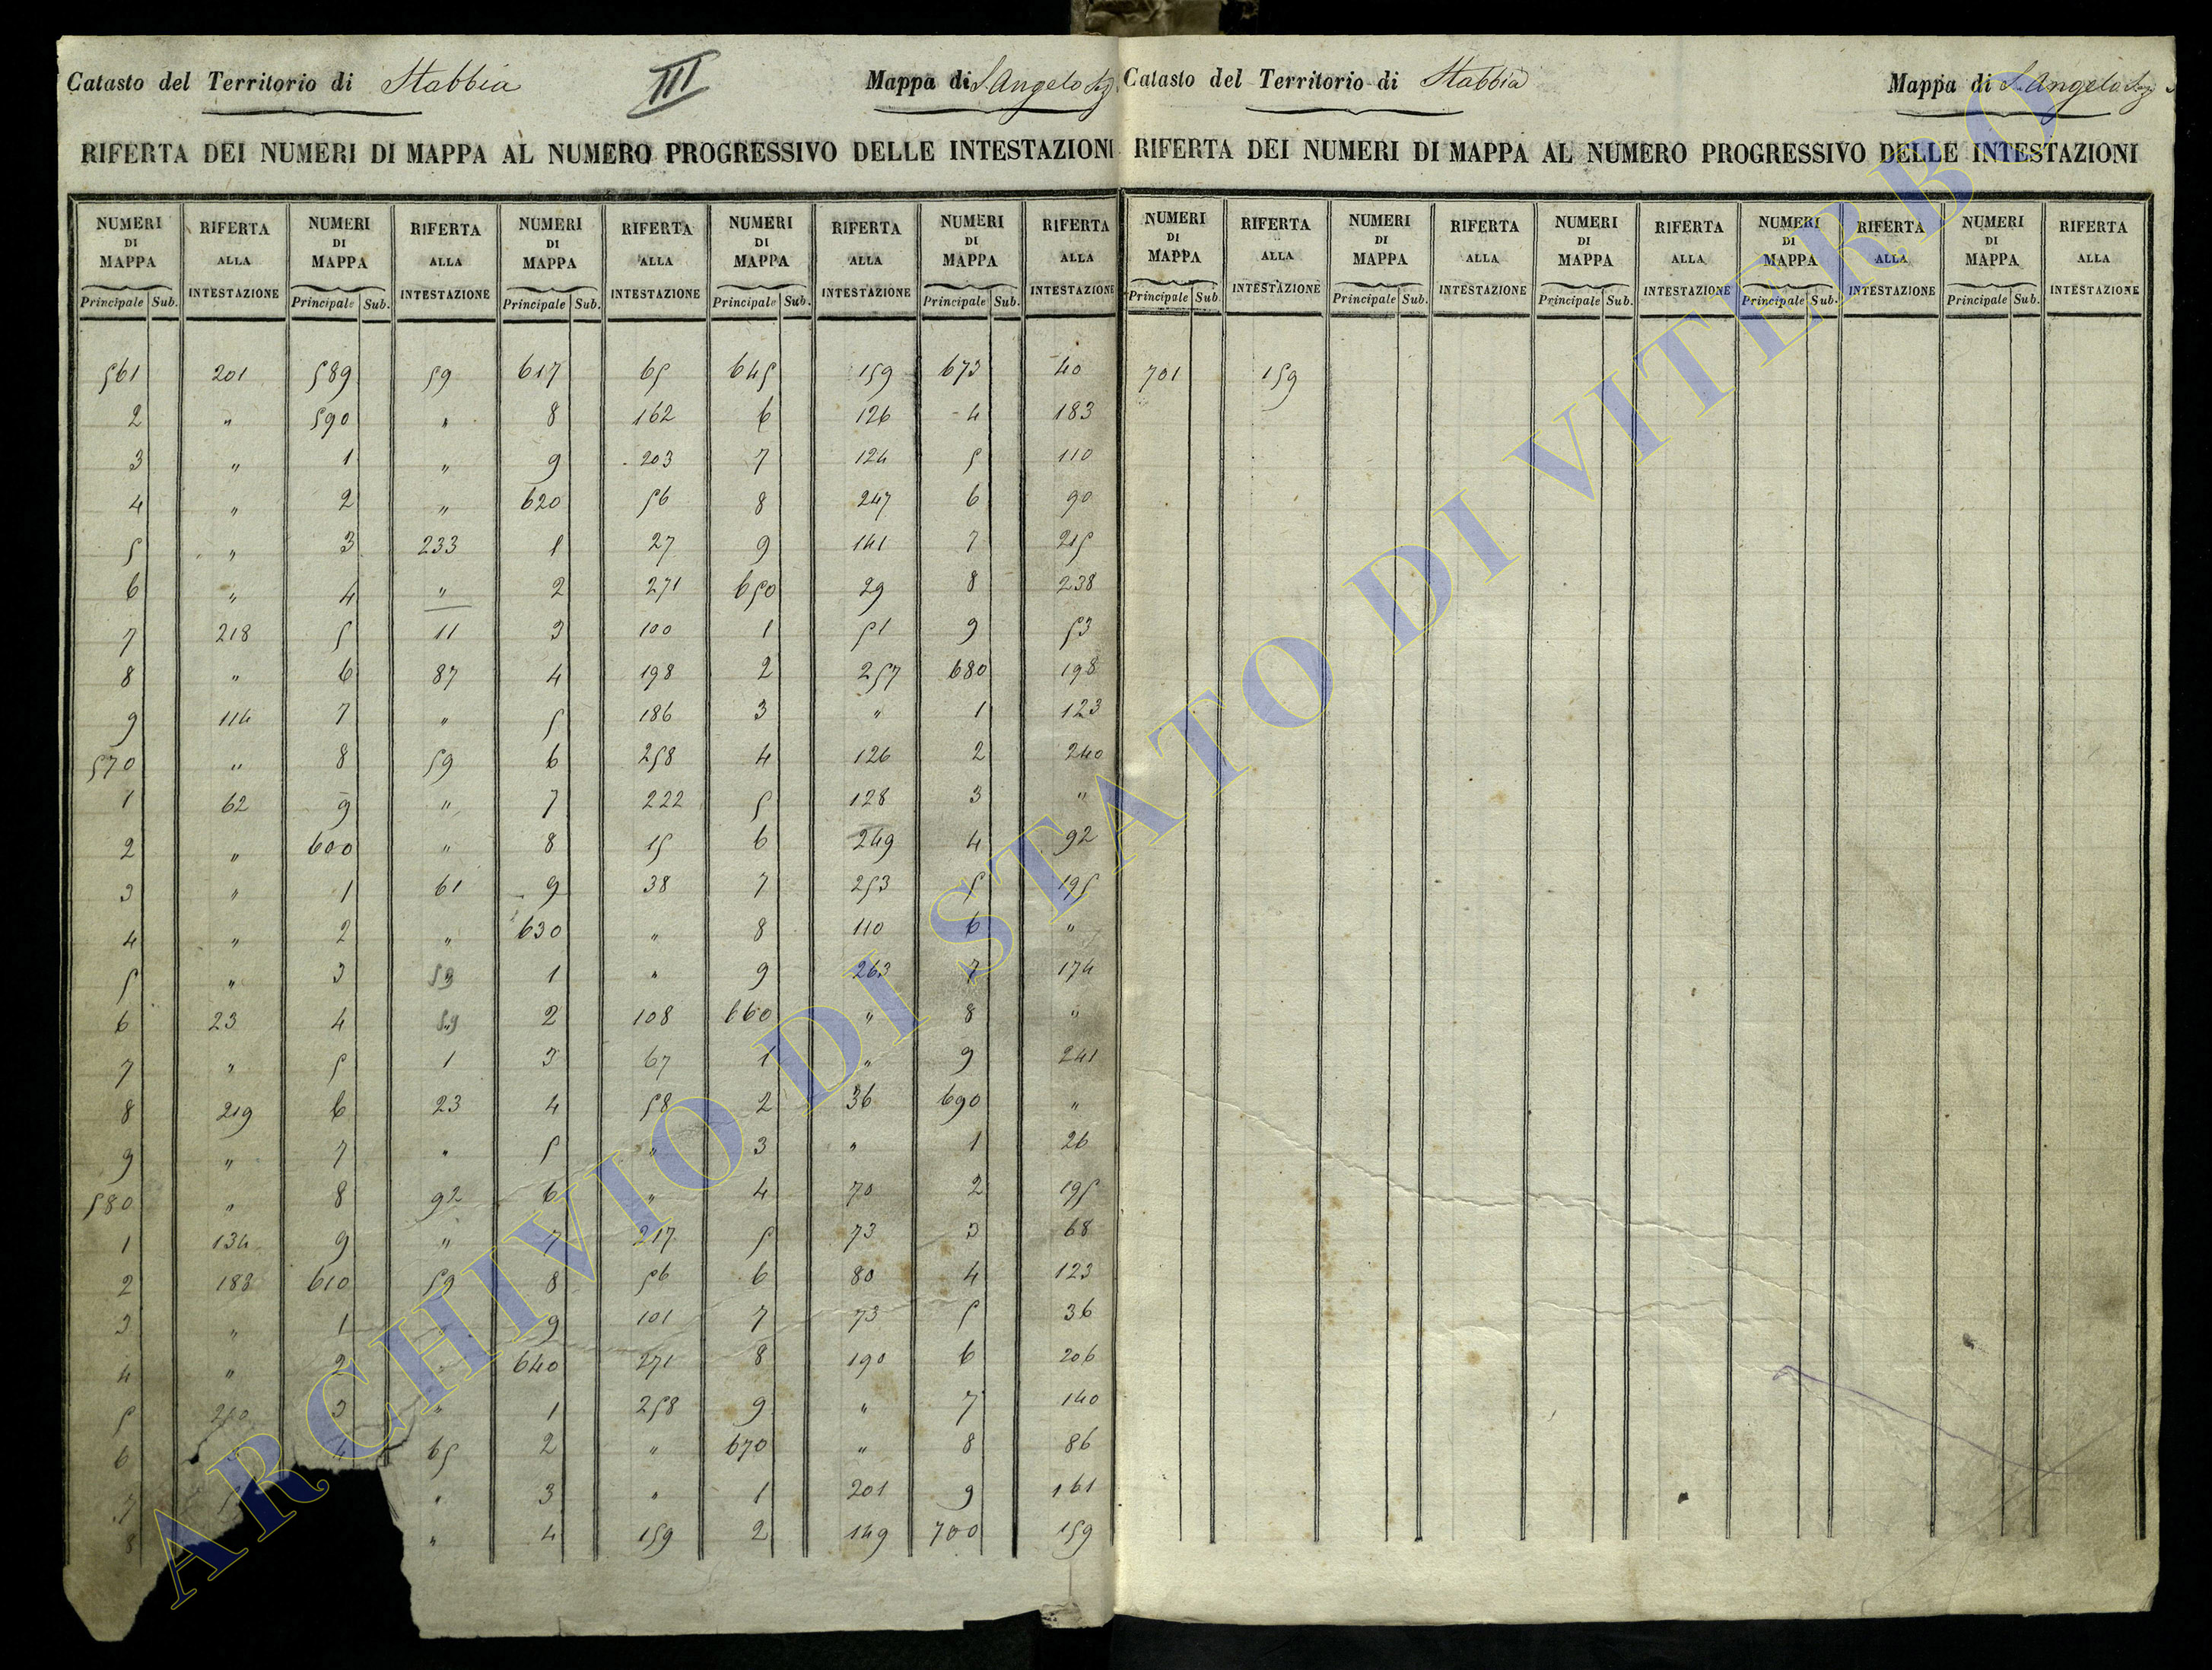 Catasto del Territorio di Stabbia III Mappa di S. Angelo
RIFERTA DEI NUMERI DI MAPPA AL NUMERO PROGRESSIVO DELLE INTESTAZIONI
NUMERI DI MAPPA RIFERTA ALLA INTESTAZIONE NUMERI DI MAPPA RIFERTA ALLA INTESTAZIONE NUMERI DI MAPPA RIFERTA ALLA INTESTAZIONE NUMERI DI MAPPA RIFERTA ALLA INTESTAZIONE NUMERI DI MAPPA RIFERTA ALLA INTESTAZIONE
Principale Sub. Principale Sub. Principale Sub. Principale Sub. Principale Sub.
561 201 589 59 617 65 645 159 673 40
2 " 590 " 8 162 6 126 4 183
3 " 1 " 9 203 7 124 5 110
4 " 2 " 620 56 8 247 6 90
5 " 3 233 1 27 9 141 7 215
6 " 4 " 2 271 650 29 8 238
7 218 5 11 3 100 1 51 9 53
8 " 6 87 4 198 2 257 680 198
9 114 7 " 5 186 3 " 1 123
570 " 8 59 6 258 4 126 2 240
1 62 9 " 7 222 5 128 3 "
2 " 600 " 8 15 6 249 4 92
3 " 1 61 9 38 7 253 5 195
4 " 2 " 630 " 8 110 6 "
5 " 3 59 1 " 9 263 7 174
6 23 4 59 2 108 660 " 8 "
7 " 5 1 3 67 1 " 9 241
8 219 6 23 4 58 2 36 690 "
9 " 7 " 5 " 3 " 1 26
580 " 8 92 6 " 4 70 2 195
1 134 9 " 7 217 5 73 3 68
2 183 610 59 8 56 6 80 4 123
3 " 1 9 101 7 73 5 36
4 " 2 640 271 8 190 6 206
5 3 " 1 258 9 " 7 140
6 4 65 2 " 670 " 8 86
7 " 3 " 1 201 9 161
8 " 4 159 2 149 700 159
Catasto del Territorio di Stabbia Mappa di S. Angelo
RIFERTA DEI NUMERI DI MAPPA AL NUMERO PROGRESSIVO DELLE INTESTAZIONI
NUMERI DI MAPPA RIFERTA ALLA INTESTAZIONE NUMERI DI MAPPA RIFERTA ALLA INTESTAZIONE NUMERI DI MAPPA RIFERTA ALLA INTESTAZIONE NUMERI DI MAPPA RIFERTA ALLA INTESTAZIONE NUMERI DI MAPPA RIFERTA ALLA INTESTAZIONE
Principale Sub. Principale Sub. Principale Sub. Principale Sub. Principale Sub.
701 159
ARCHIVIO DI STATO DI VITERBO